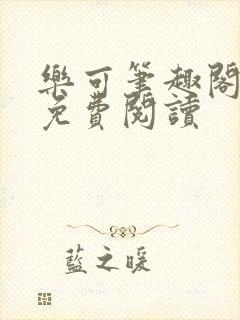 樂可筆趣閣
免費閱讀
藍之暖